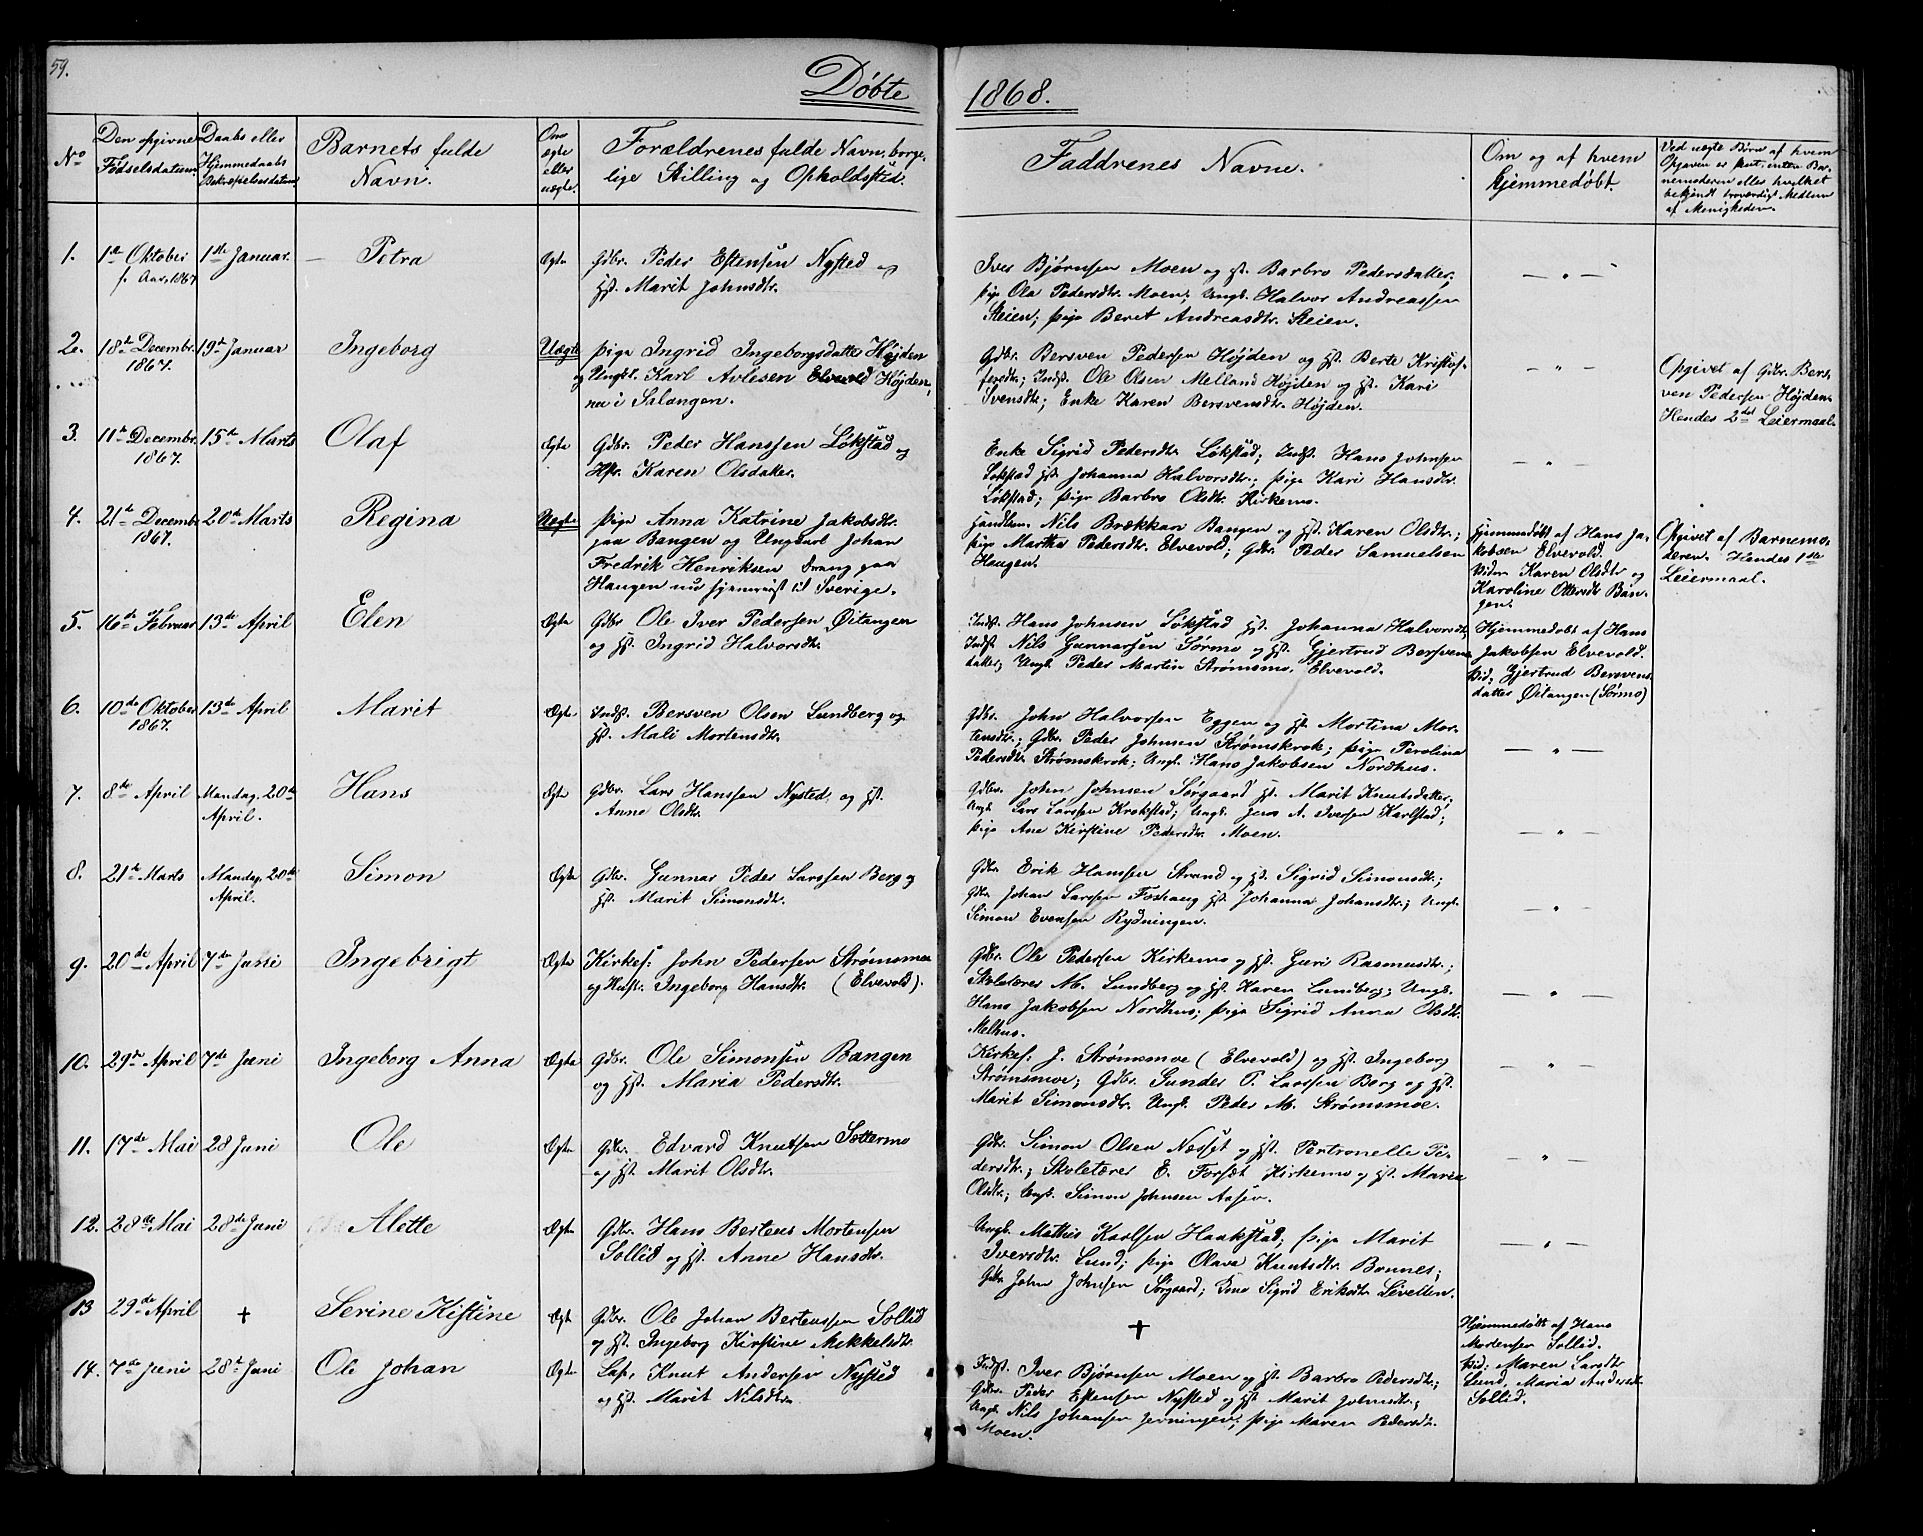 59.
Døbte 1868.
No
Den opgivne Fødselsdatum
Daabs eller Hjemmedaabs Bekræftelsesdatum
Barnets fulde Navn.
Om ægte eller uægte.
Forældrenes fulde Navn, borgelige Stilling og Opholdssted.
Faddrenes Navne.
Om og af hvem hjemmedøbt.
Ved uægte Børn af hvem Opgaven er skeet, enten Barnemoderen eller hvilket bekjendt troværdigt Medlem af Menigheden.
1. 1ste Oktober f. Aar, 1867 1ste Januar. Petra Ægte
Gdbr. Peder Estensen Nysted og
Hst. Marit Johnsdtr.
Iver Bjørnsen Moen og Hst. Barbro Pedersdatter;
Pige Ola Pedersdtr. Moen; Ungk. Halvor Andreassen
Steien; Pige Beret Andreasdtr. Steien.
— " —
2. 18de Decembr. 1867. 19de Januar Ingeborg Uægte
Pige Ingrid Ingeborgsdatter Højden
og Ungk. Karl Avlesen Elvevold Højden,
nu i Salangen.
Gdbr. Bersven Pedersen Højden og Hst. Berte Kristof-
fersdtr; Indst. Ole Olsen Melland Højden og Hst. Kari
Svensdtr; Enke Karen Bersvensdtr. Højden.
— " —
Opgivet af Gdbr. Bers-
ven Pedersen Højden.
Hendes 2det Leiermaal.
3. 11te Decembr. 1867. 15de Marts Olaf Ægte
Gdbr. Peder Hanssen Løkstad og
Hst. Karen Olsdatter.
Enke Sigrid Pedersdtr. Løkstad; Indst. Hans Johnsen
Løkstad Hst. Johanna Halvorsdtr; Pige Kari Hansdtr
Løkstad; Pige Barbro Olsdtr. Kirkemo.
— " —
4. 21de Decembr 1867. 20de Marts Regina Uægte
Pige Anna Katrine Jakobsdtr.
paa Bangen og Ungkarl Johan
Fredrik Henriksen Dreng paa
Haugen nu hjemreist til Sverige.
Handlsm. Nils Brækkan Bangen og Hst. Karen Olsdtr.;
Pige Martha Pedersdtr. Elvevold; Gdbr. Peder Samuelsen
Haugen.
Hjemmedøbt af Hans Ja-
kobsen Elvevold.
Vidne Karen Olsdtr og
Karoline Ottersdtr Ban-
gen.
Opgivet af Barnemo-
deren. Hendes 1ste
Leiermaal.
5. 16de Februar 13de April Elen Ægte
Gdbr Ole Iver Pedersen Øitangen
og Hst. Ingrid Halvorsdtr.
Indst. Hans Johnsen Løkstad Hst. Johanna Halvorsdtr,
Indst. Nils Gunnarsen Sørmo og Hst. Gjertrud Bersvens-
datter; Ungk. Peder Martin Strømsmo, Elvevold.
Hjemmedøbt af Hans
Jakobsen Elvevold.
Vid; Gjertrud Bersvens
datter Øitangen (Sørmo)
6. 10de Oktober 1867. 13de April Marit Ægte
Indst. Bersven Olsen Lundberg og
Hst. Mali Mortensdtr.
Gdbr. John Halvorsen Eggen og Hst. Mortina Mor-
tensdtr.; Gdbr. Peder Johnsen Strømskrok; Pige Perolina
Pedersdtr Strømskrok; Ungk. Hans Jakobsen Nordhus.
— " —
7. 8de April Mandag, 20de April. Hans Ægte
Gdbr. Lars Hanssen Nysted, og Hst.
Anne Olsdtr.
Gdbr. John Johnsen Sørgaard Hst. Marit Knutsdatter;
Ungk. Lars Larssen Krokstad; Ungk. Jens A. Iversen Karlstad;
Pige Ane Kirstine Pedersdtr. Moen.
— " —
8. 21de Marts Mandag, 20de April. Simon Ægte
Gdbr. Gunnar Peder Larssen Berg og
Hst. Marit Simonsdtr.
Gdbr. Erik Hansen Strand og Hst. Sigrid Simonsdtr.;
Gdbr. Johan Larssen Foshaug Hst. Johanna Johansdtr.; Ungk.
Simon Evensen Rydningen.
— " —
9. 20de April 7de Juni Ingebrigt Ægte
Kirkes: John Pedersen Strømsmoe
og Hust. Ingeborg Hansdtr. (Elvevold).
Gdbr. Ole Pedersen Kirkemo og Hst. Guri Rasmusdtr.;
Skolelærer M. Lundberg og Hst. Karen Lundberg; Ungk.
Hans Jakobsen Nordhus; Pige Sigrid Anna Olsdtr.
Melhus.
— " —
10. 29de April 7de Juni Ingeborg Anna Ægte
Gdbr. Ole Simonsen Bangen
og Hst. Maria Pedersdtr.
Kirkes: J. Strømsmoe (Elvevold) og Hst. Ingeborg
Strømsmoe; Gdbr. Gunder P. Larssen Berg og Hst.
Marit Simonsdtr. Ungk. Peder M. Strømsmoe.
— " —
11. 17de Mai 28 Juni Ole Ægte
Gdbr. Edvard Knutsen Sættermo
og Hst. Marit Olsdtr.
Gdbr. Simon Olsen Nedset og Hst. Pertronelle Pe-
dersdtr.; Skolelærer E. Forsæt Kirkemo og Hst. Maria
Olsdtr.; Ungk. Simon Johnsen Aasen.
— " —
12. 28de Mai 28de Juni Alette Ægte
Gdbr. Hans Berteus Mortensen
Sollid og Hst. Anne Hansdtr.
Ungk. Mathis Karlsen Haakstad; Pige Marit
Iversdtr. Lund; Pige Olava Knutsdtr. Bonnes;
Gdbr John Johnsen Sørgaard; Kone Sigrid Eriksdtr Livelten.
— " —
13 29de April + Serine Kistine Ægte
Gdbr. Ole Johan Berteussen Sollid
og Hst. Ingeborg Kirstine Mikkelsdtr.
+
Hjemmedøbt af Hans
Mortensen Sollid.
Vid: Maren Larsdtr
Lund, Maria Andersdtr
Sollid.
14. 7de Juni 28de Juni Ole Johan Ægte
Lap, Knut Andersen Nysted
og Hst. Marit Nilsdtr.
Indst. Iver Bjørnsen Moen og Hst. Barbro Pedersdtr.;
Gdbr. Peder Estensen Nysted og Hst. Marit Johnsdtr.;
Ungk Nils Johansen Jevningen; Pige Maren Pedersdtr.
Moen.